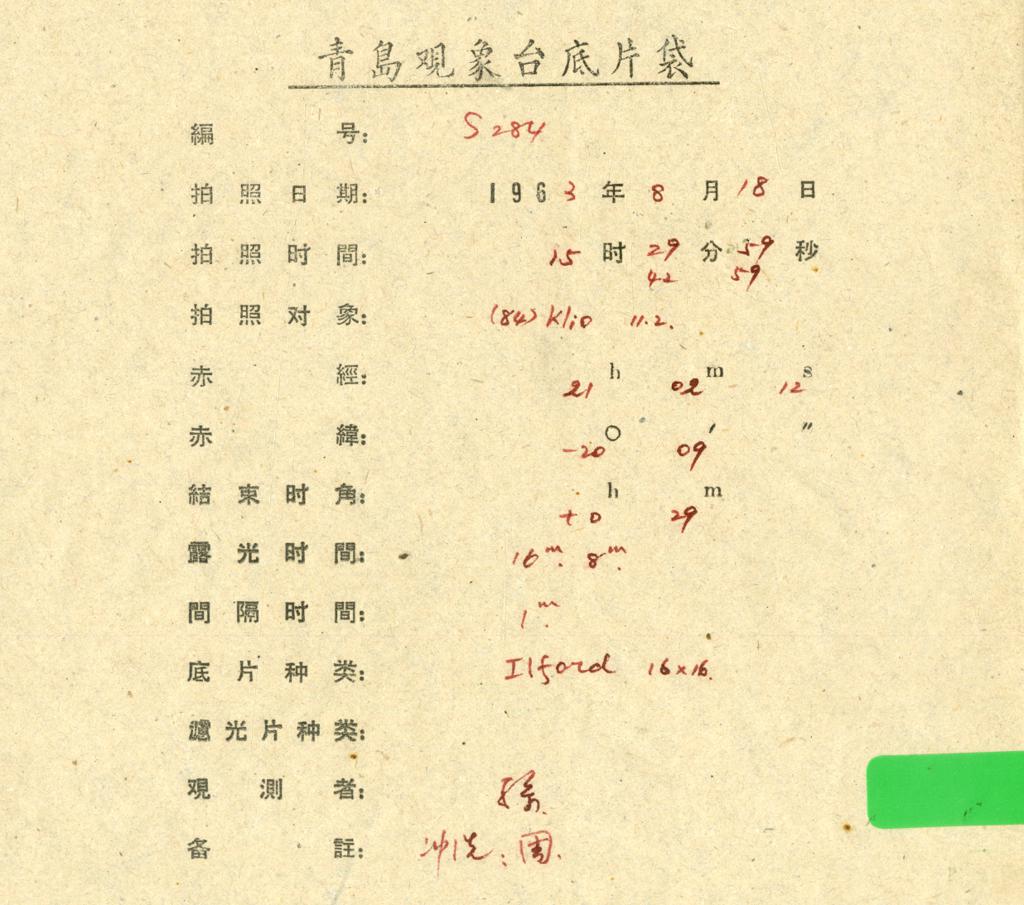 青島观象台底片袋
編号: S 284
拍照日期: 1963年8月18日
拍照时間: 15时29分59秒
42 59
拍照对象: (84) Klio 11.2.
赤經: 21h 02m 12s
赤緯: -20° 09′ ″
結束时角: +0h 29m
露光时間: 16m. 8m.
間隔时間: 1m.
底片种类: Ilford 16×16.
濾光片种类:
观測者: 孫
备註: 冲洗: 周.